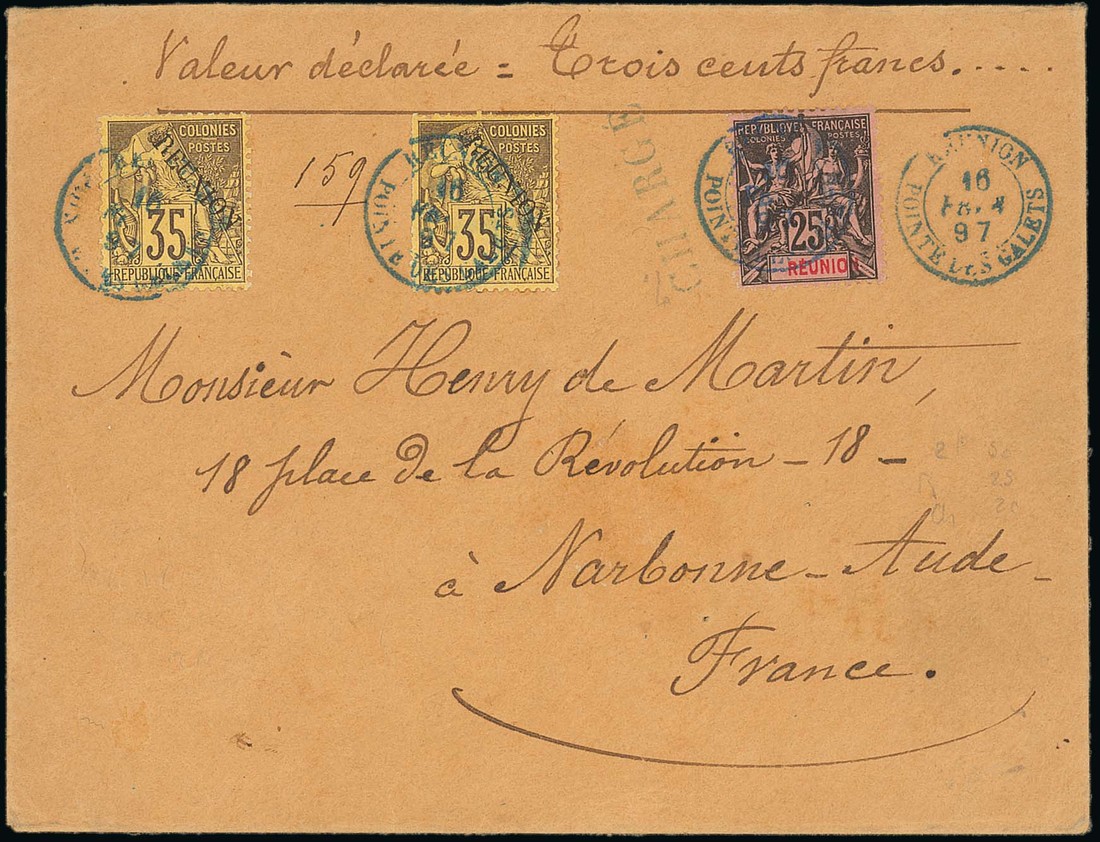 Valeur déclarée = Trois cents francs.....
COLONIES
POSTES
REUNION
35
REPUBLIQUE FRANÇAISE
159
COLONIES
POSTES
REUNION
35
REPUBLIQUE FRANÇAISE
16
97
POINTE
CHARGÉ
REPUBLIQUE FRANÇAISE
COLONIES
POSTES
25
RÉUNION
POIN
REUNION
16
97
POINTE DES GALETS
Monsieur Henry de Martin,
18 place de la Révolution - 18 -
à Narbonne - Aude -
France.